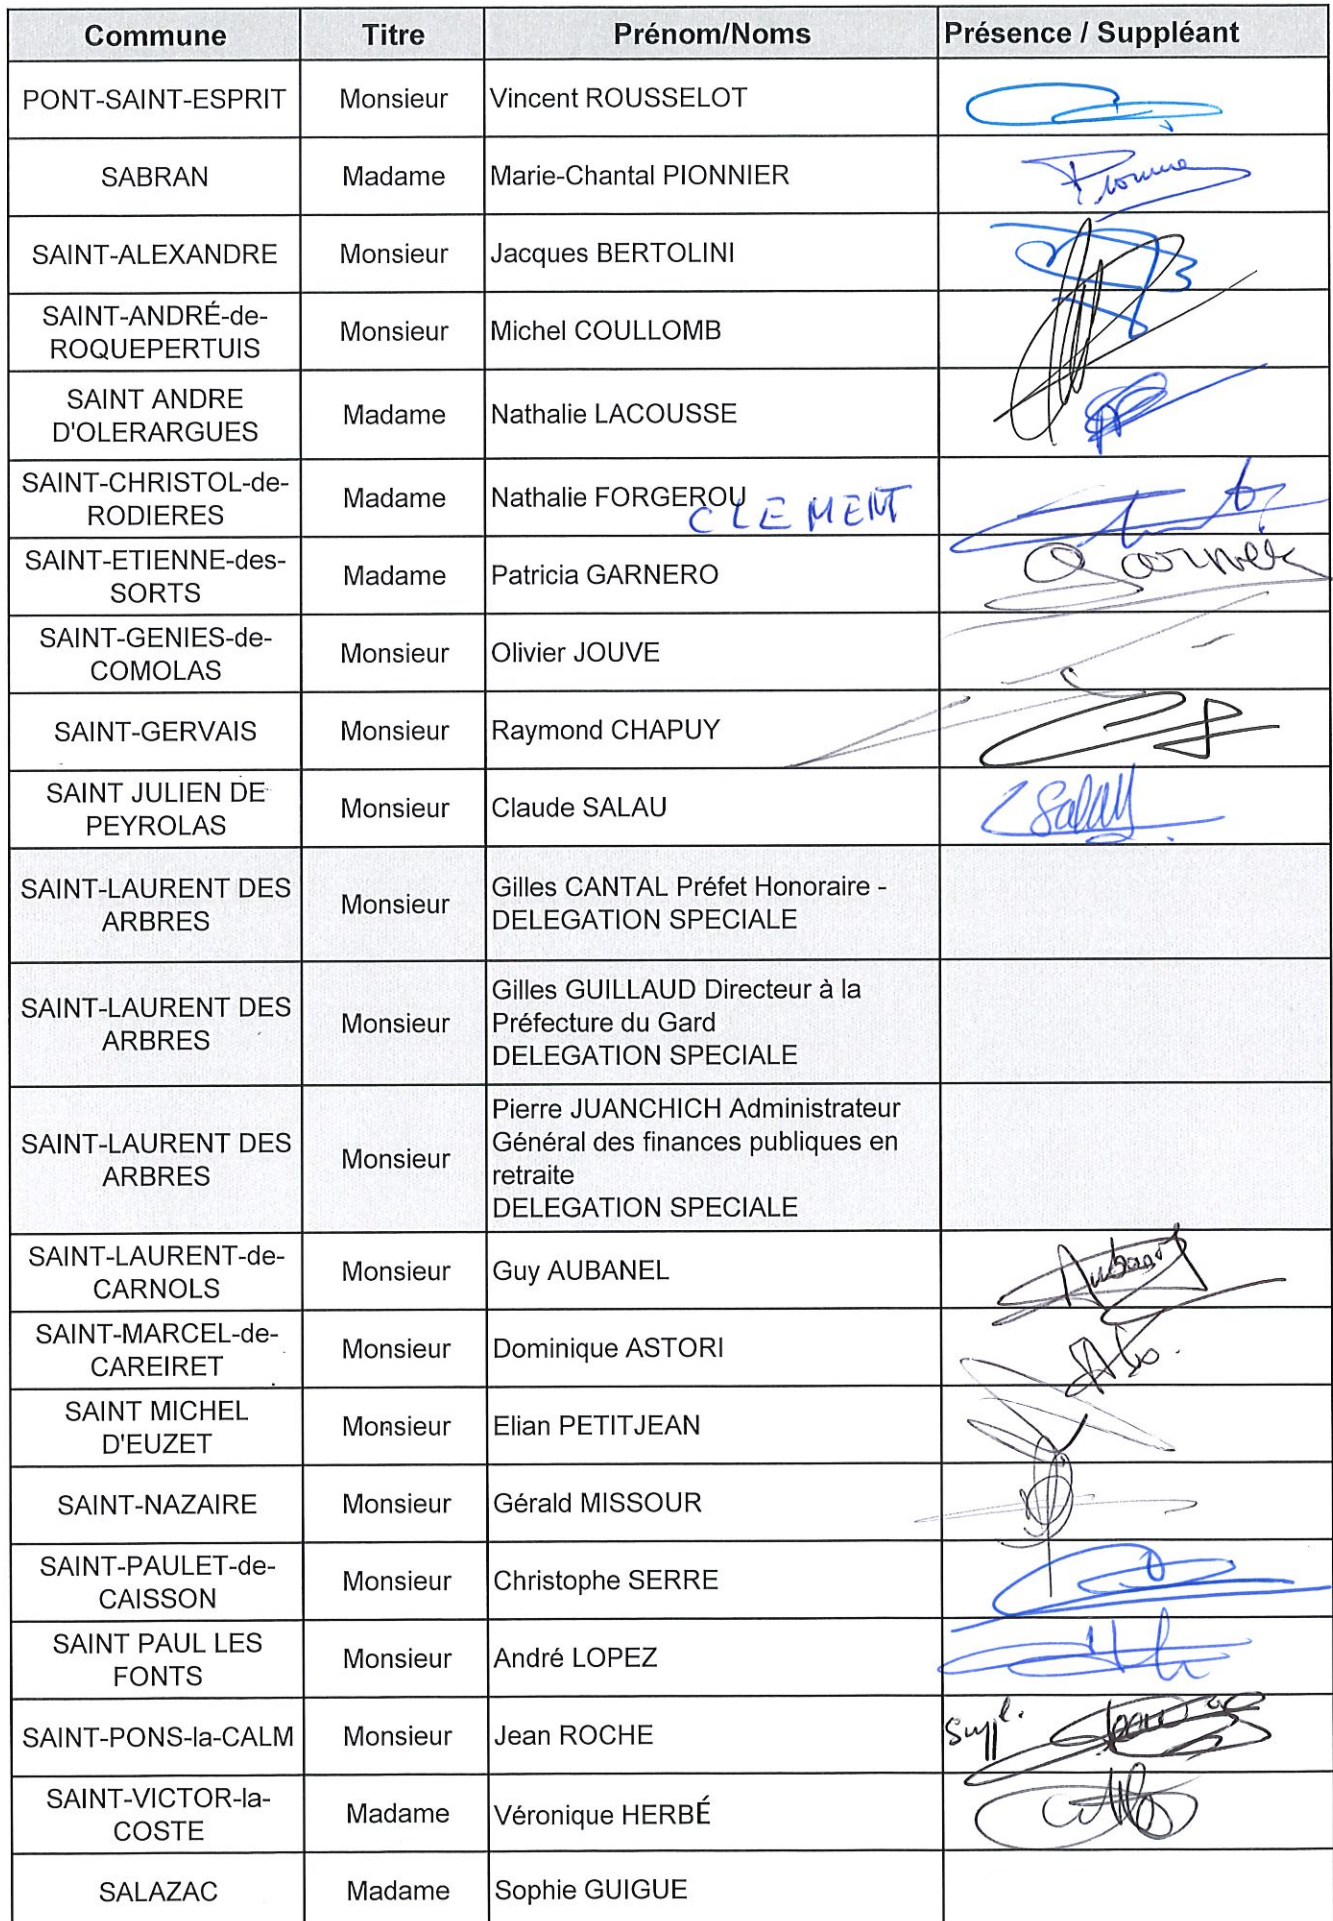 Commune Titre Prénom/Noms Présence / Suppléant
PONT-SAINT-ESPRIT Monsieur Vincent ROUSSELOT
SABRAN Madame Marie-Chantal PIONNIER
SAINT-ALEXANDRE Monsieur Jacques BERTOLINI
SAINT-ANDRÉ-de-
ROQUEPERTUIS Monsieur Michel COULLOMB
SAINT ANDRE
D'OLERARGUES Madame Nathalie LACOUSSE
SAINT-CHRISTOL-de-
RODIERES Madame Nathalie FORGEROU
CLEMENT
SAINT-ETIENNE-des-
SORTS Madame Patricia GARNERO
SAINT-GENIES-de-
COMOLAS Monsieur Olivier JOUVE
SAINT-GERVAIS Monsieur Raymond CHAPUY
SAINT JULIEN DE
PEYROLAS Monsieur Claude SALAU
Salau
SAINT-LAURENT DES
ARBRES Monsieur Gilles CANTAL Préfet Honoraire -
DELEGATION SPECIALE
SAINT-LAURENT DES
ARBRES Monsieur Gilles GUILLAUD Directeur à la
Préfecture du Gard
DELEGATION SPECIALE
SAINT-LAURENT DES
ARBRES Monsieur Pierre JUANCHICH Administrateur
Général des finances publiques en
retraite
DELEGATION SPECIALE
SAINT-LAURENT-de-
CARNOLS Monsieur Guy AUBANEL
Aubanel
SAINT-MARCEL-de-
CAREIRET Monsieur Dominique ASTORI
SAINT MICHEL
D'EUZET Monsieur Elian PETITJEAN
SAINT-NAZAIRE Monsieur Gérald MISSOUR
SAINT-PAULET-de-
CAISSON Monsieur Christophe SERRE
SAINT PAUL LES
FONTS Monsieur André LOPEZ
SAINT-PONS-la-CALM Monsieur Jean ROCHE Suppl.
SAINT-VICTOR-la-
COSTE Madame Véronique HERBÉ
SALAZAC Madame Sophie GUIGUE